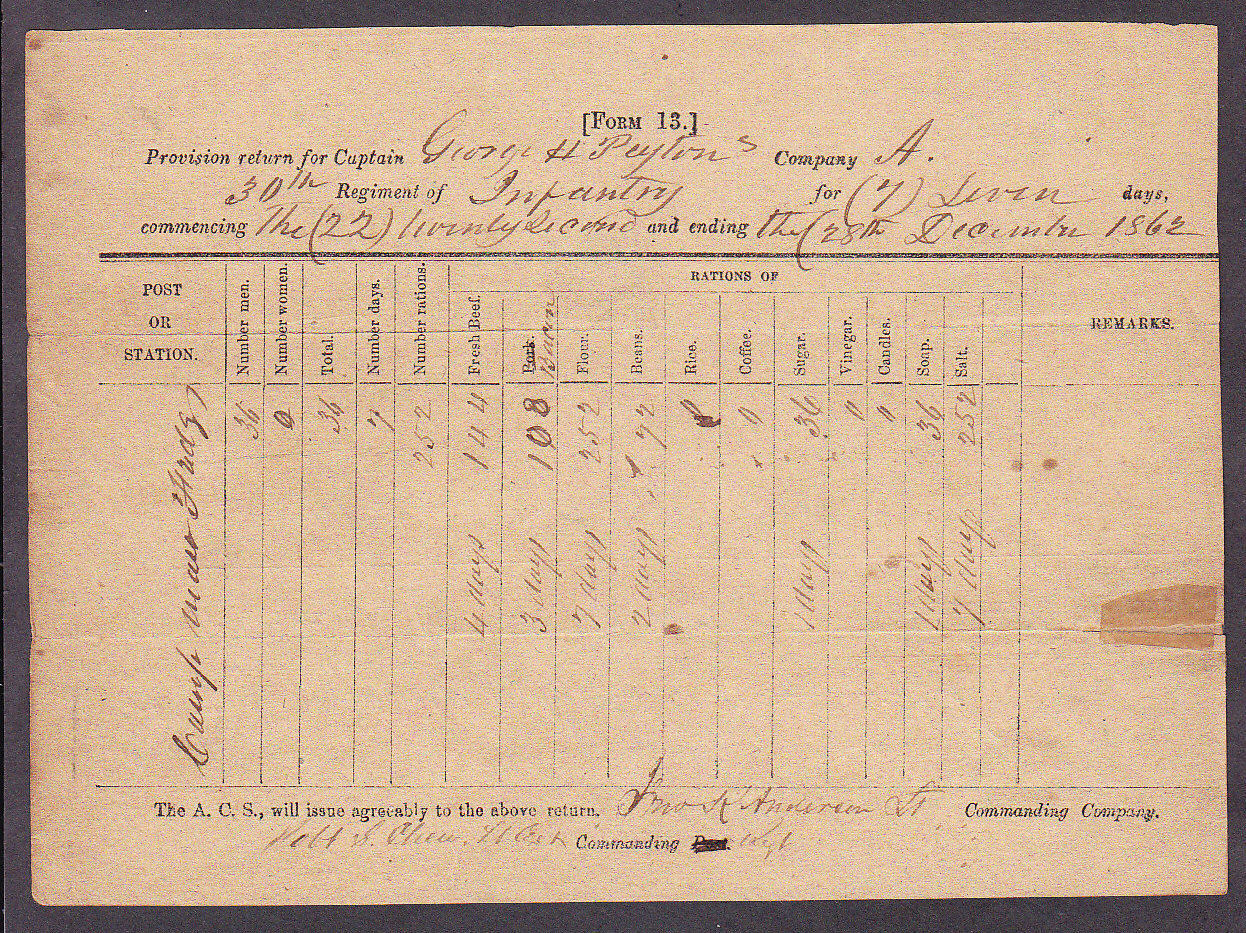 [FORM 13.]
Provision return for Captain George H Peyton's Company A.
30th Regiment of Infantry for (7) Seven days,
commencing the (22) twenty second and ending the (28th December 1862
RATIONS OF
POST OR STATION. Number men. Number women. Total. Number days. Number rations. Fresh Beef. Pork. Bacon Flour. Beans. Rice. Coffee. Sugar. Vinegar. Candles. Soap. Salt. REMARKS.
Camp 36 0 36 7 252 144 108 252 72 0 36 0 0 36 252
4 days 3 days 7 days 2 days 1 days 1 days 7 days
The A. C. S., will issue agreeably to the above return. Jno K Anderson Lt Commanding Company.
Robt S. Chew. Lt Col Commanding Post. Regt